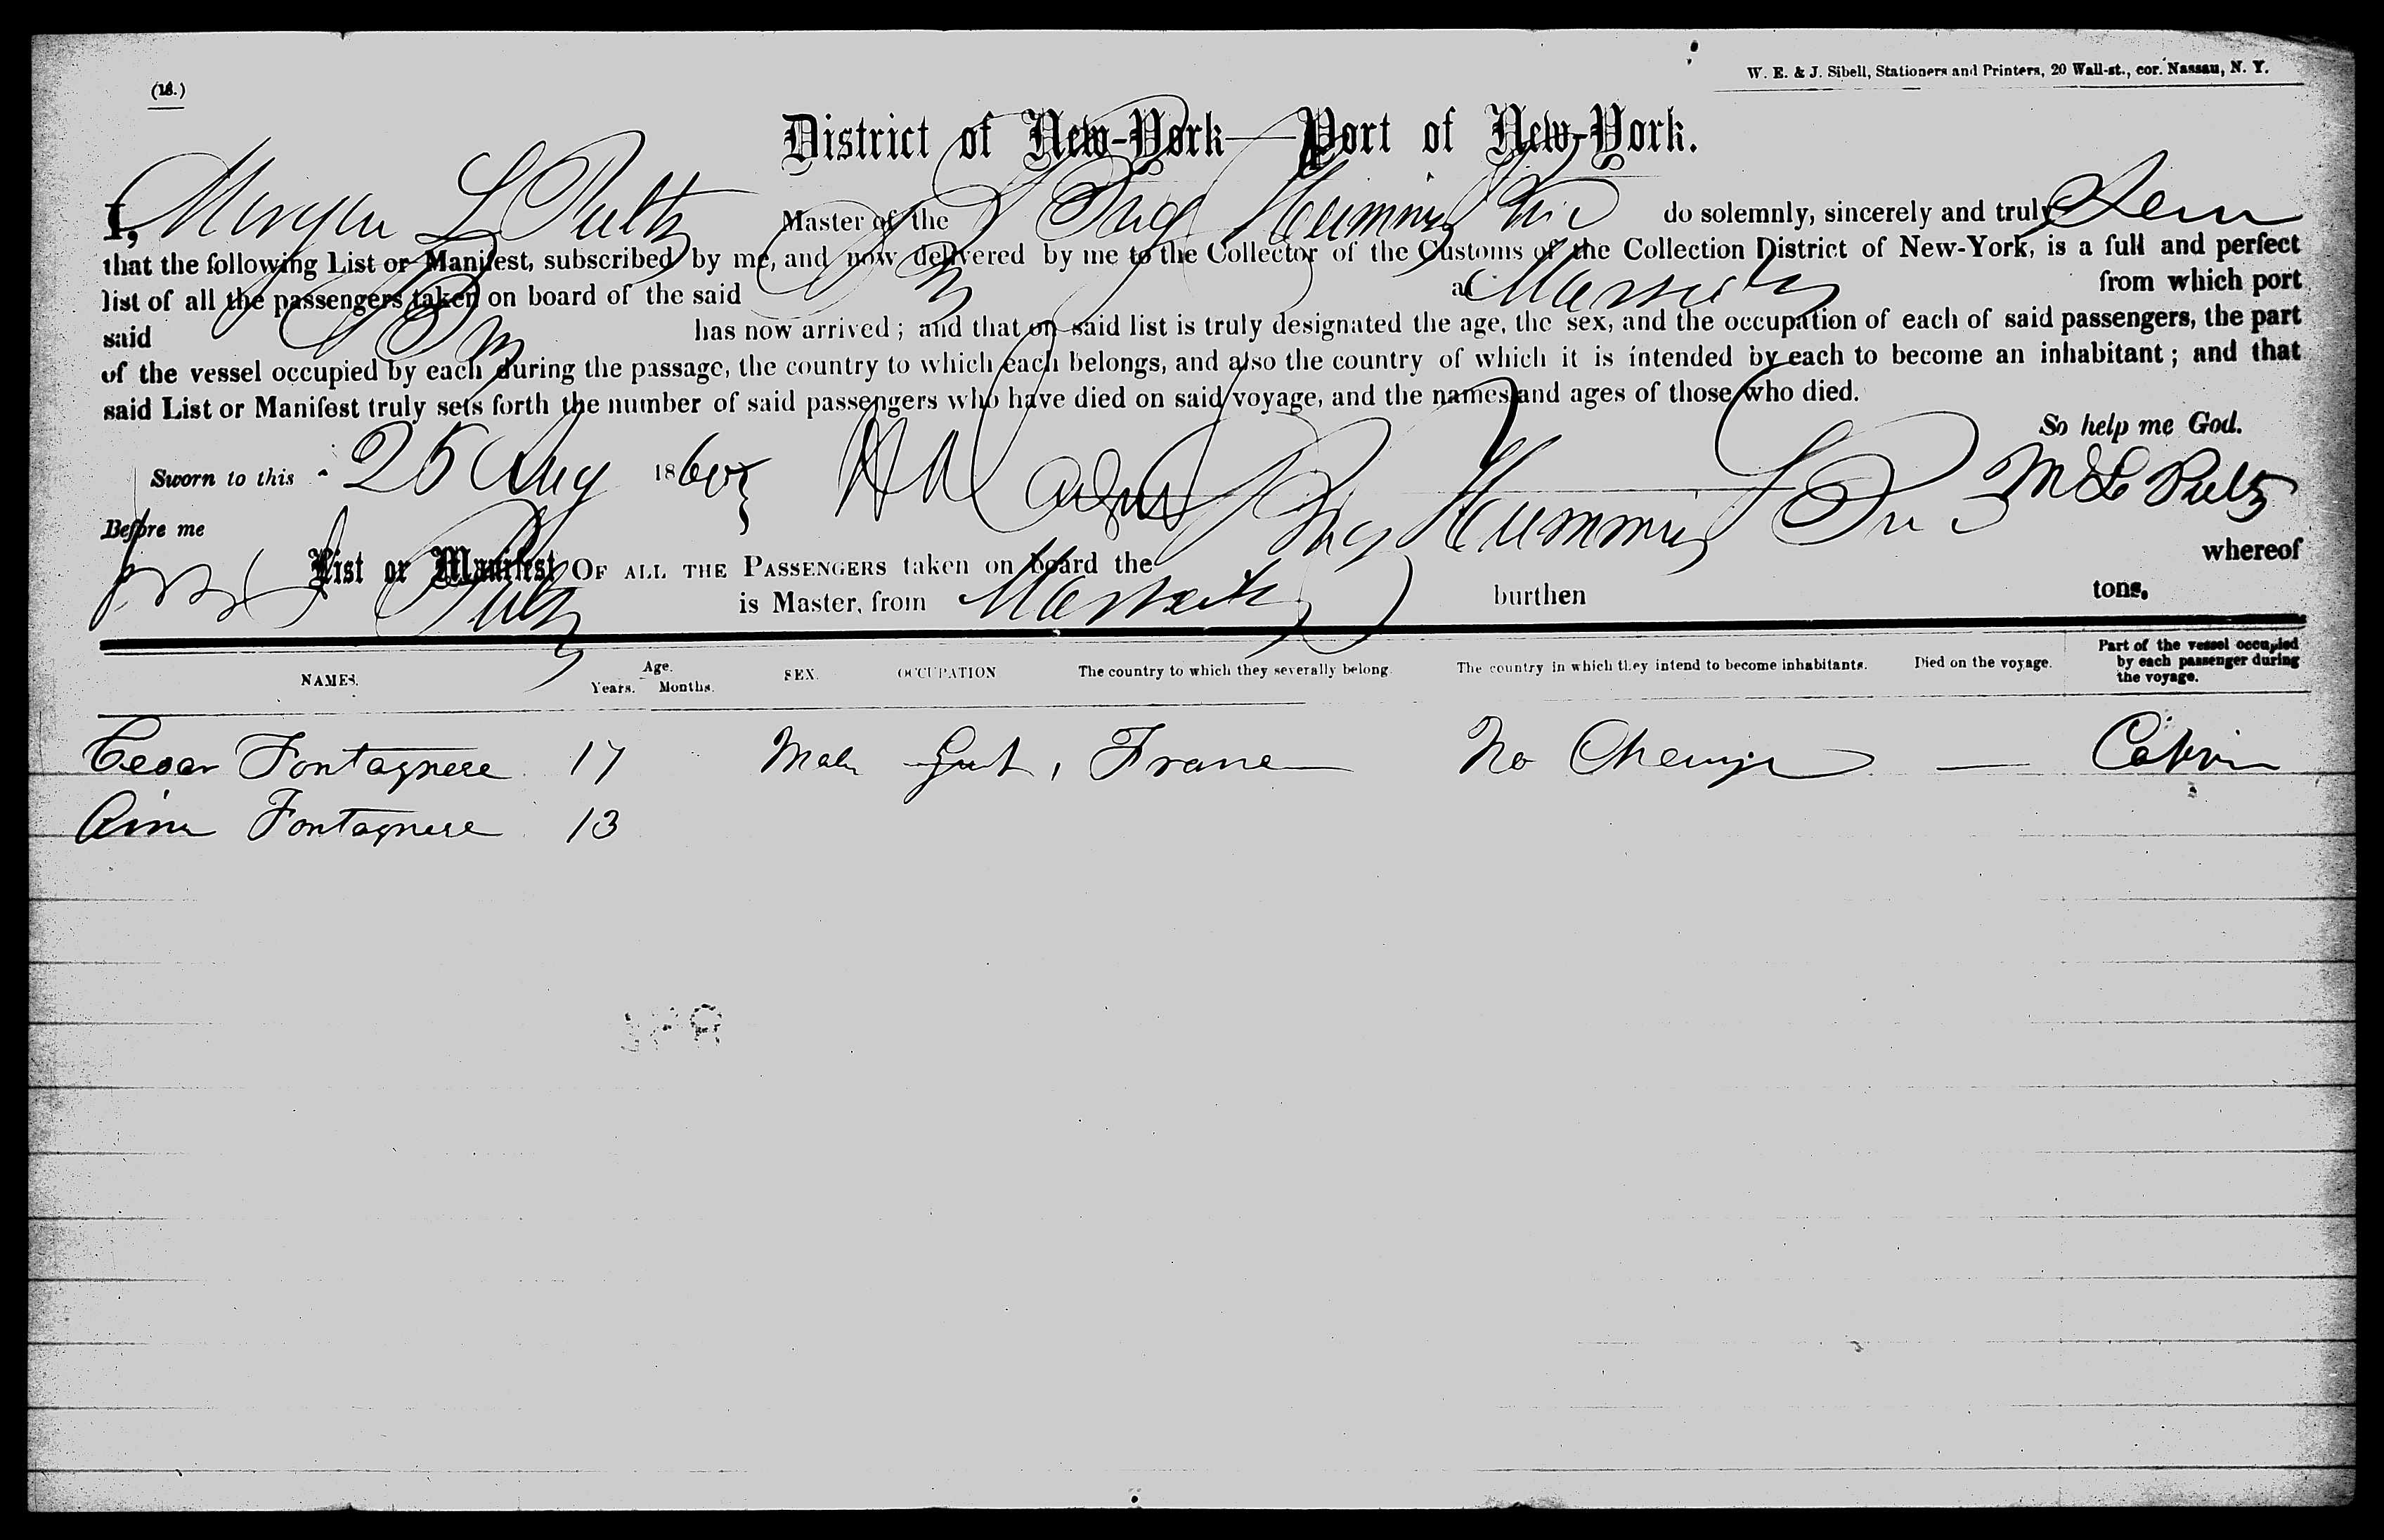 (18.)
W. E. & J. Sibell, Stationers and Printers, 20 Wall-st., cor. Nassau, N. Y.
District of New-York—Port of New-York.
I, Morgan L Pultz Master of the Brig Humming Bird do solemnly, sincerely and truly Swear
that the following List or Manifest, subscribed by me, and now delivered by me to the Collector of the Customs of the Collection District of New-York, is a full and perfect
list of all the passengers taken on board of the said Brig at Marseilles from which port
said Brig has now arrived; and that on said list is truly designated the age, the sex, and the occupation of each of said passengers, the part
of the vessel occupied by each during the passage, the country to which each belongs, and also the country of which it is intended by each to become an inhabitant; and that
said List or Manifest truly sets forth the number of said passengers who have died on said voyage, and the names and ages of those who died.
So help me God.
Sworn to this 25 Aug 1860 M L Pultz
Before me
List or Manifest OF ALL THE PASSENGERS taken on board the Brig Humming Bird whereof
Pultz is Master, from Marseilles burthen tons.
NAMES. Age. Years. Months. SEX. OCCUPATION The country to which they severally belong. The country in which they intend to become inhabitants. Died on the voyage. Part of the vessel occupied by each passenger during the voyage.
Cesar Fontagnere 17 Male Gent, France No Change — Cabin
Aime Fontagnere 13